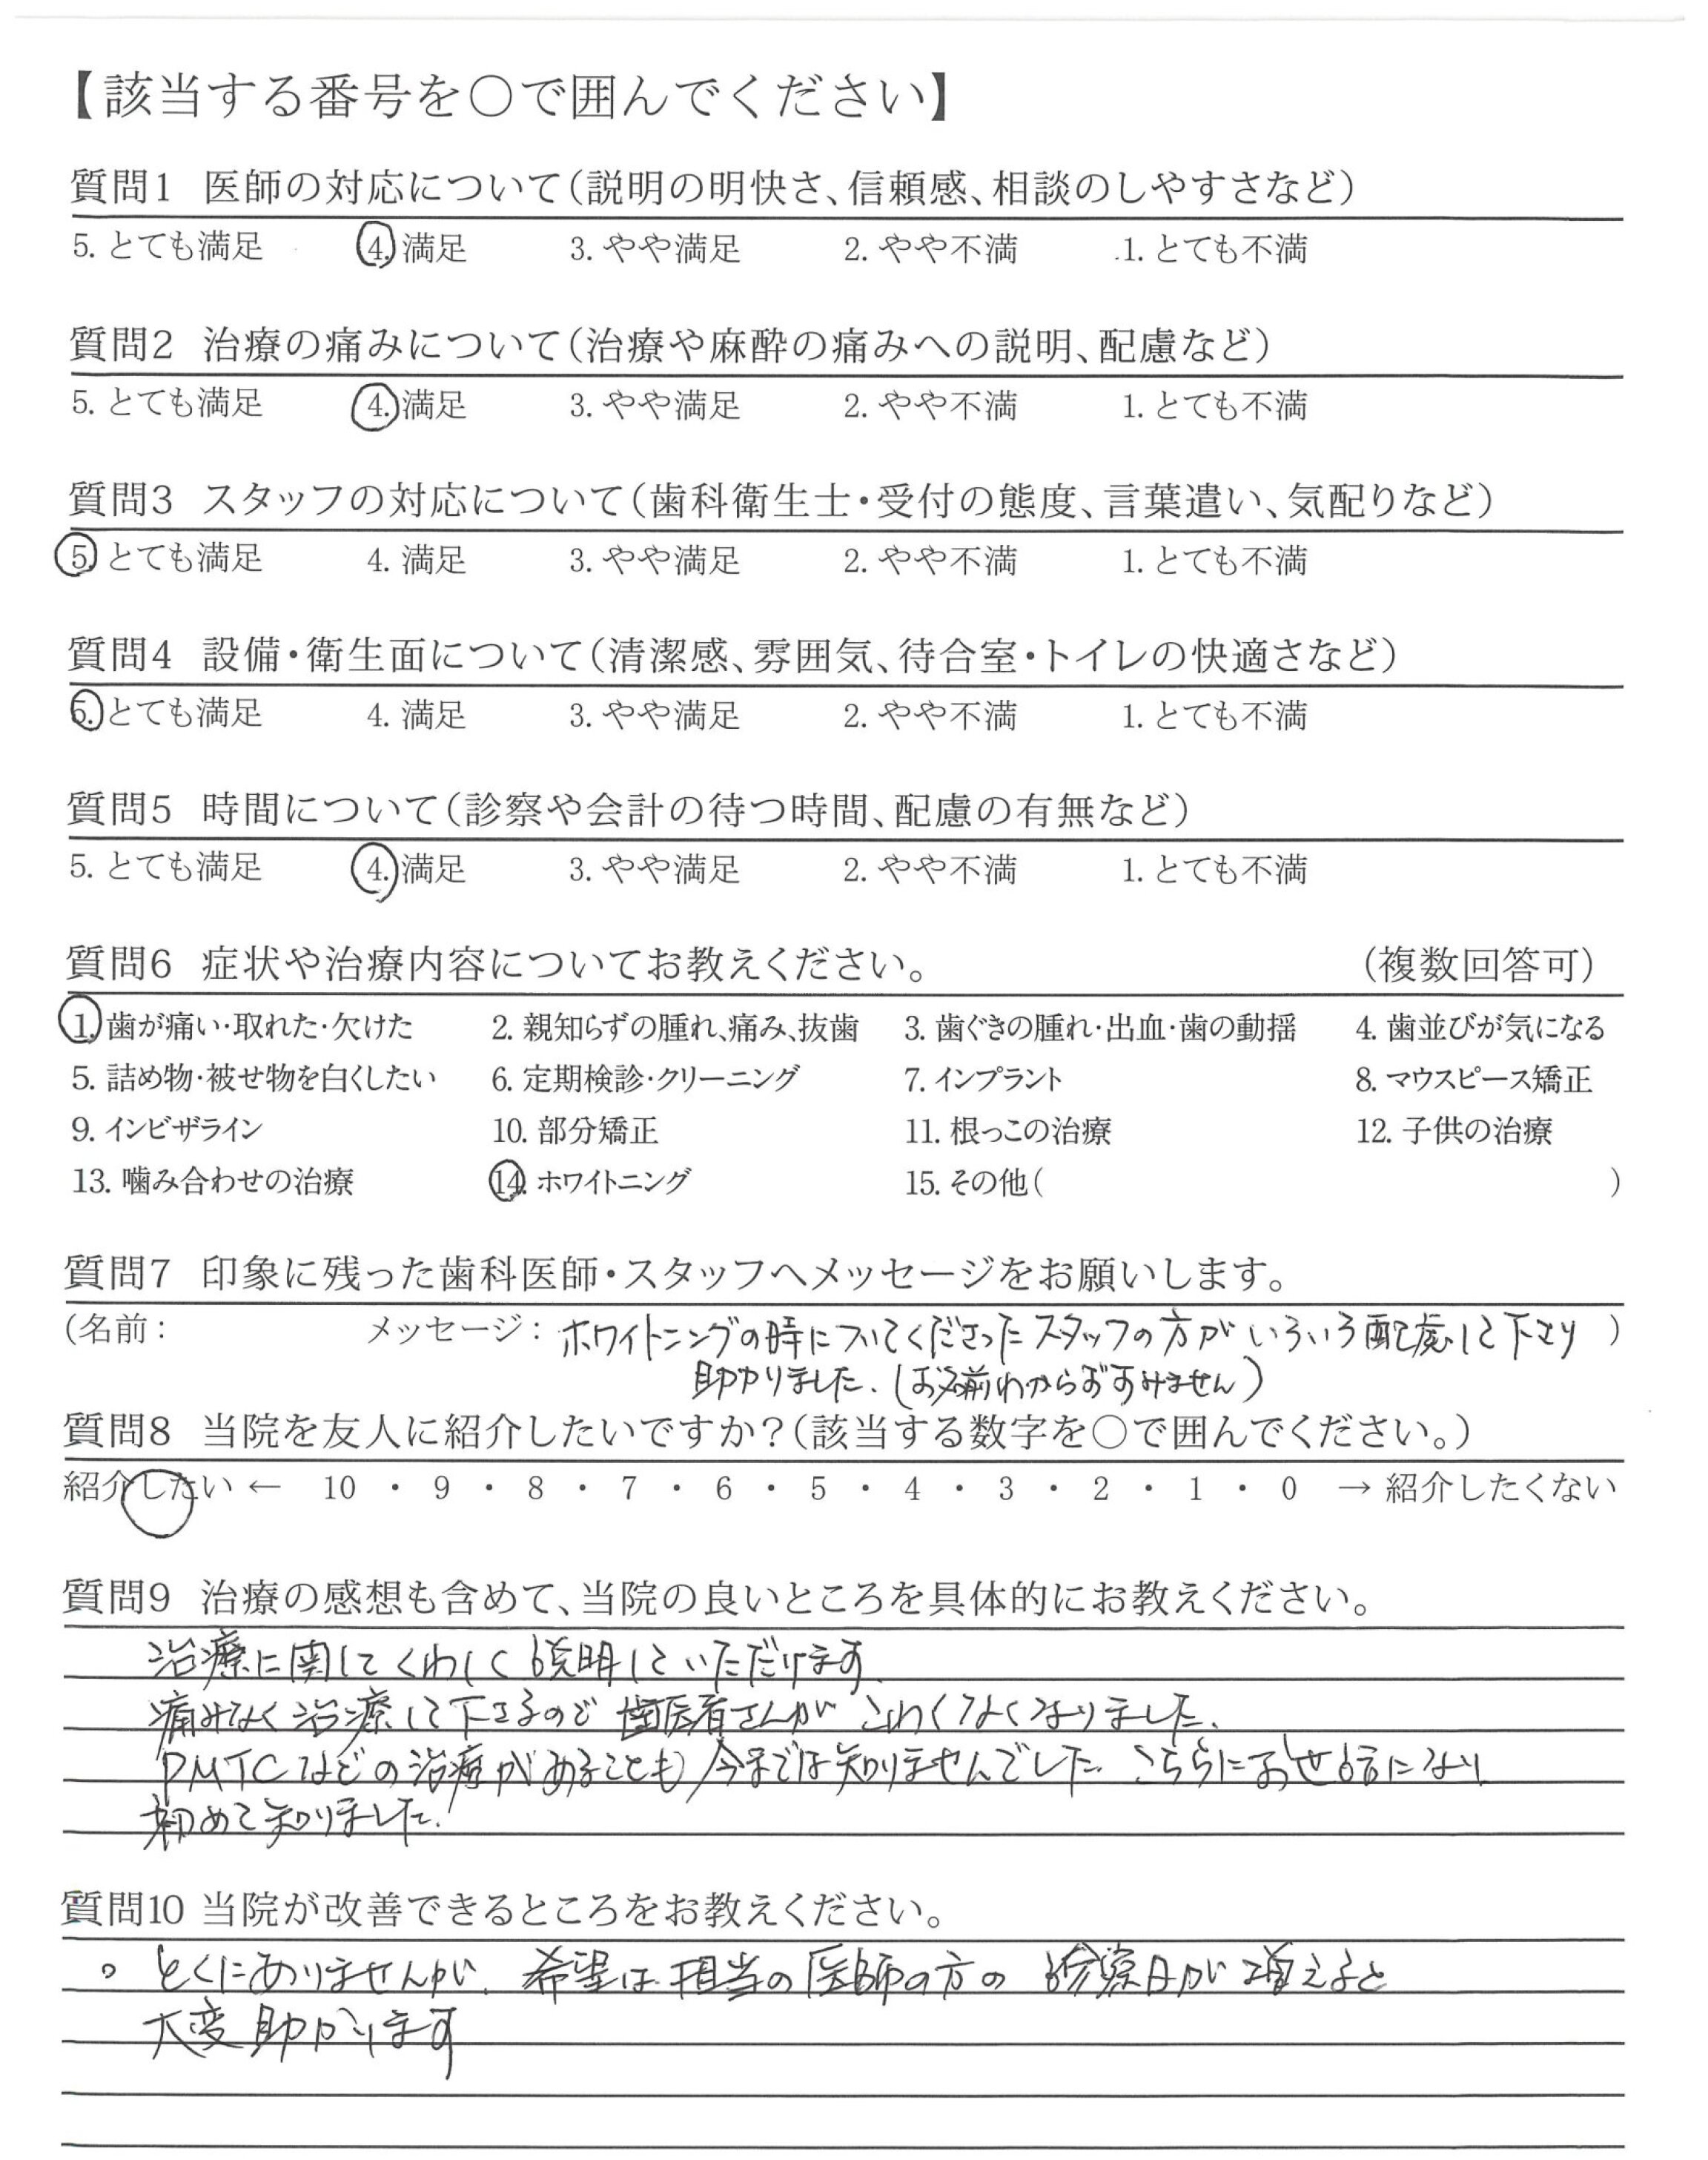 【該当する番号を○で囲んでください】
質問1 医師の対応について(説明の明快さ、信頼感、相談のしやすさなど)
5. とても満足 4. 満足 3. やや満足 2. やや不満 1. とても不満
質問2 治療の痛みについて(治療や麻酔の痛みへの説明、配慮など)
5. とても満足 4. 満足 3. やや満足 2. やや不満 1. とても不満
質問3 スタッフの対応について(歯科衛生士・受付の態度、言葉遣い、気配りなど)
5. とても満足 4. 満足 3. やや満足 2. やや不満 1. とても不満
質問4 設備・衛生面について(清潔感、雰囲気、待合室・トイレの快適さなど)
5. とても満足 4. 満足 3. やや満足 2. やや不満 1. とても不満
質問5 時間について(診察や会計の待つ時間、配慮の有無など)
5. とても満足 4. 満足 3. やや満足 2. やや不満 1. とても不満
質問6 症状や治療内容についてお教えください。 (複数回答可)
1. 歯が痛い・取れた・欠けた 2. 親知らずの腫れ、痛み、抜歯 3. 歯ぐきの腫れ・出血・歯の動揺 4. 歯並びが気になる
5. 詰め物・被せ物を白くしたい 6. 定期検診・クリーニング 7. インプラント 8. マウスピース矯正
9. インビザライン 10. 部分矯正 11. 根っこの治療 12. 子供の治療
13. 噛み合わせの治療 14. ホワイトニング 15. その他( )
質問7 印象に残った歯科医師・スタッフへメッセージをお願いします。
(名前: メッセージ: ホワイトニングの時についてくださったスタッフの方がいろいろ配慮して下さり )
助かりました.(お名前わからずすみません)
質問8 当院を友人に紹介したいですか?(該当する数字を○で囲んでください。)
紹介したい ← 10 ・ 9 ・ 8 ・ 7 ・ 6 ・ 5 ・ 4 ・ 3 ・ 2 ・ 1 ・ 0 → 紹介したくない
質問9 治療の感想も含めて、当院の良いところを具体的にお教えください。
治療に関してくわしく説明していただけます.
痛みなく治療して下さるので歯医者さんがこわくなくなりました.
PMTCなどの治療があることも今までは知りませんでした. こちらにお世話になり
初めて知りました.
質問10 当院が改善できるところをお教えください。
。とくにありませんが. 希望は担当の医師の方の診察日が増えると
大変助かります